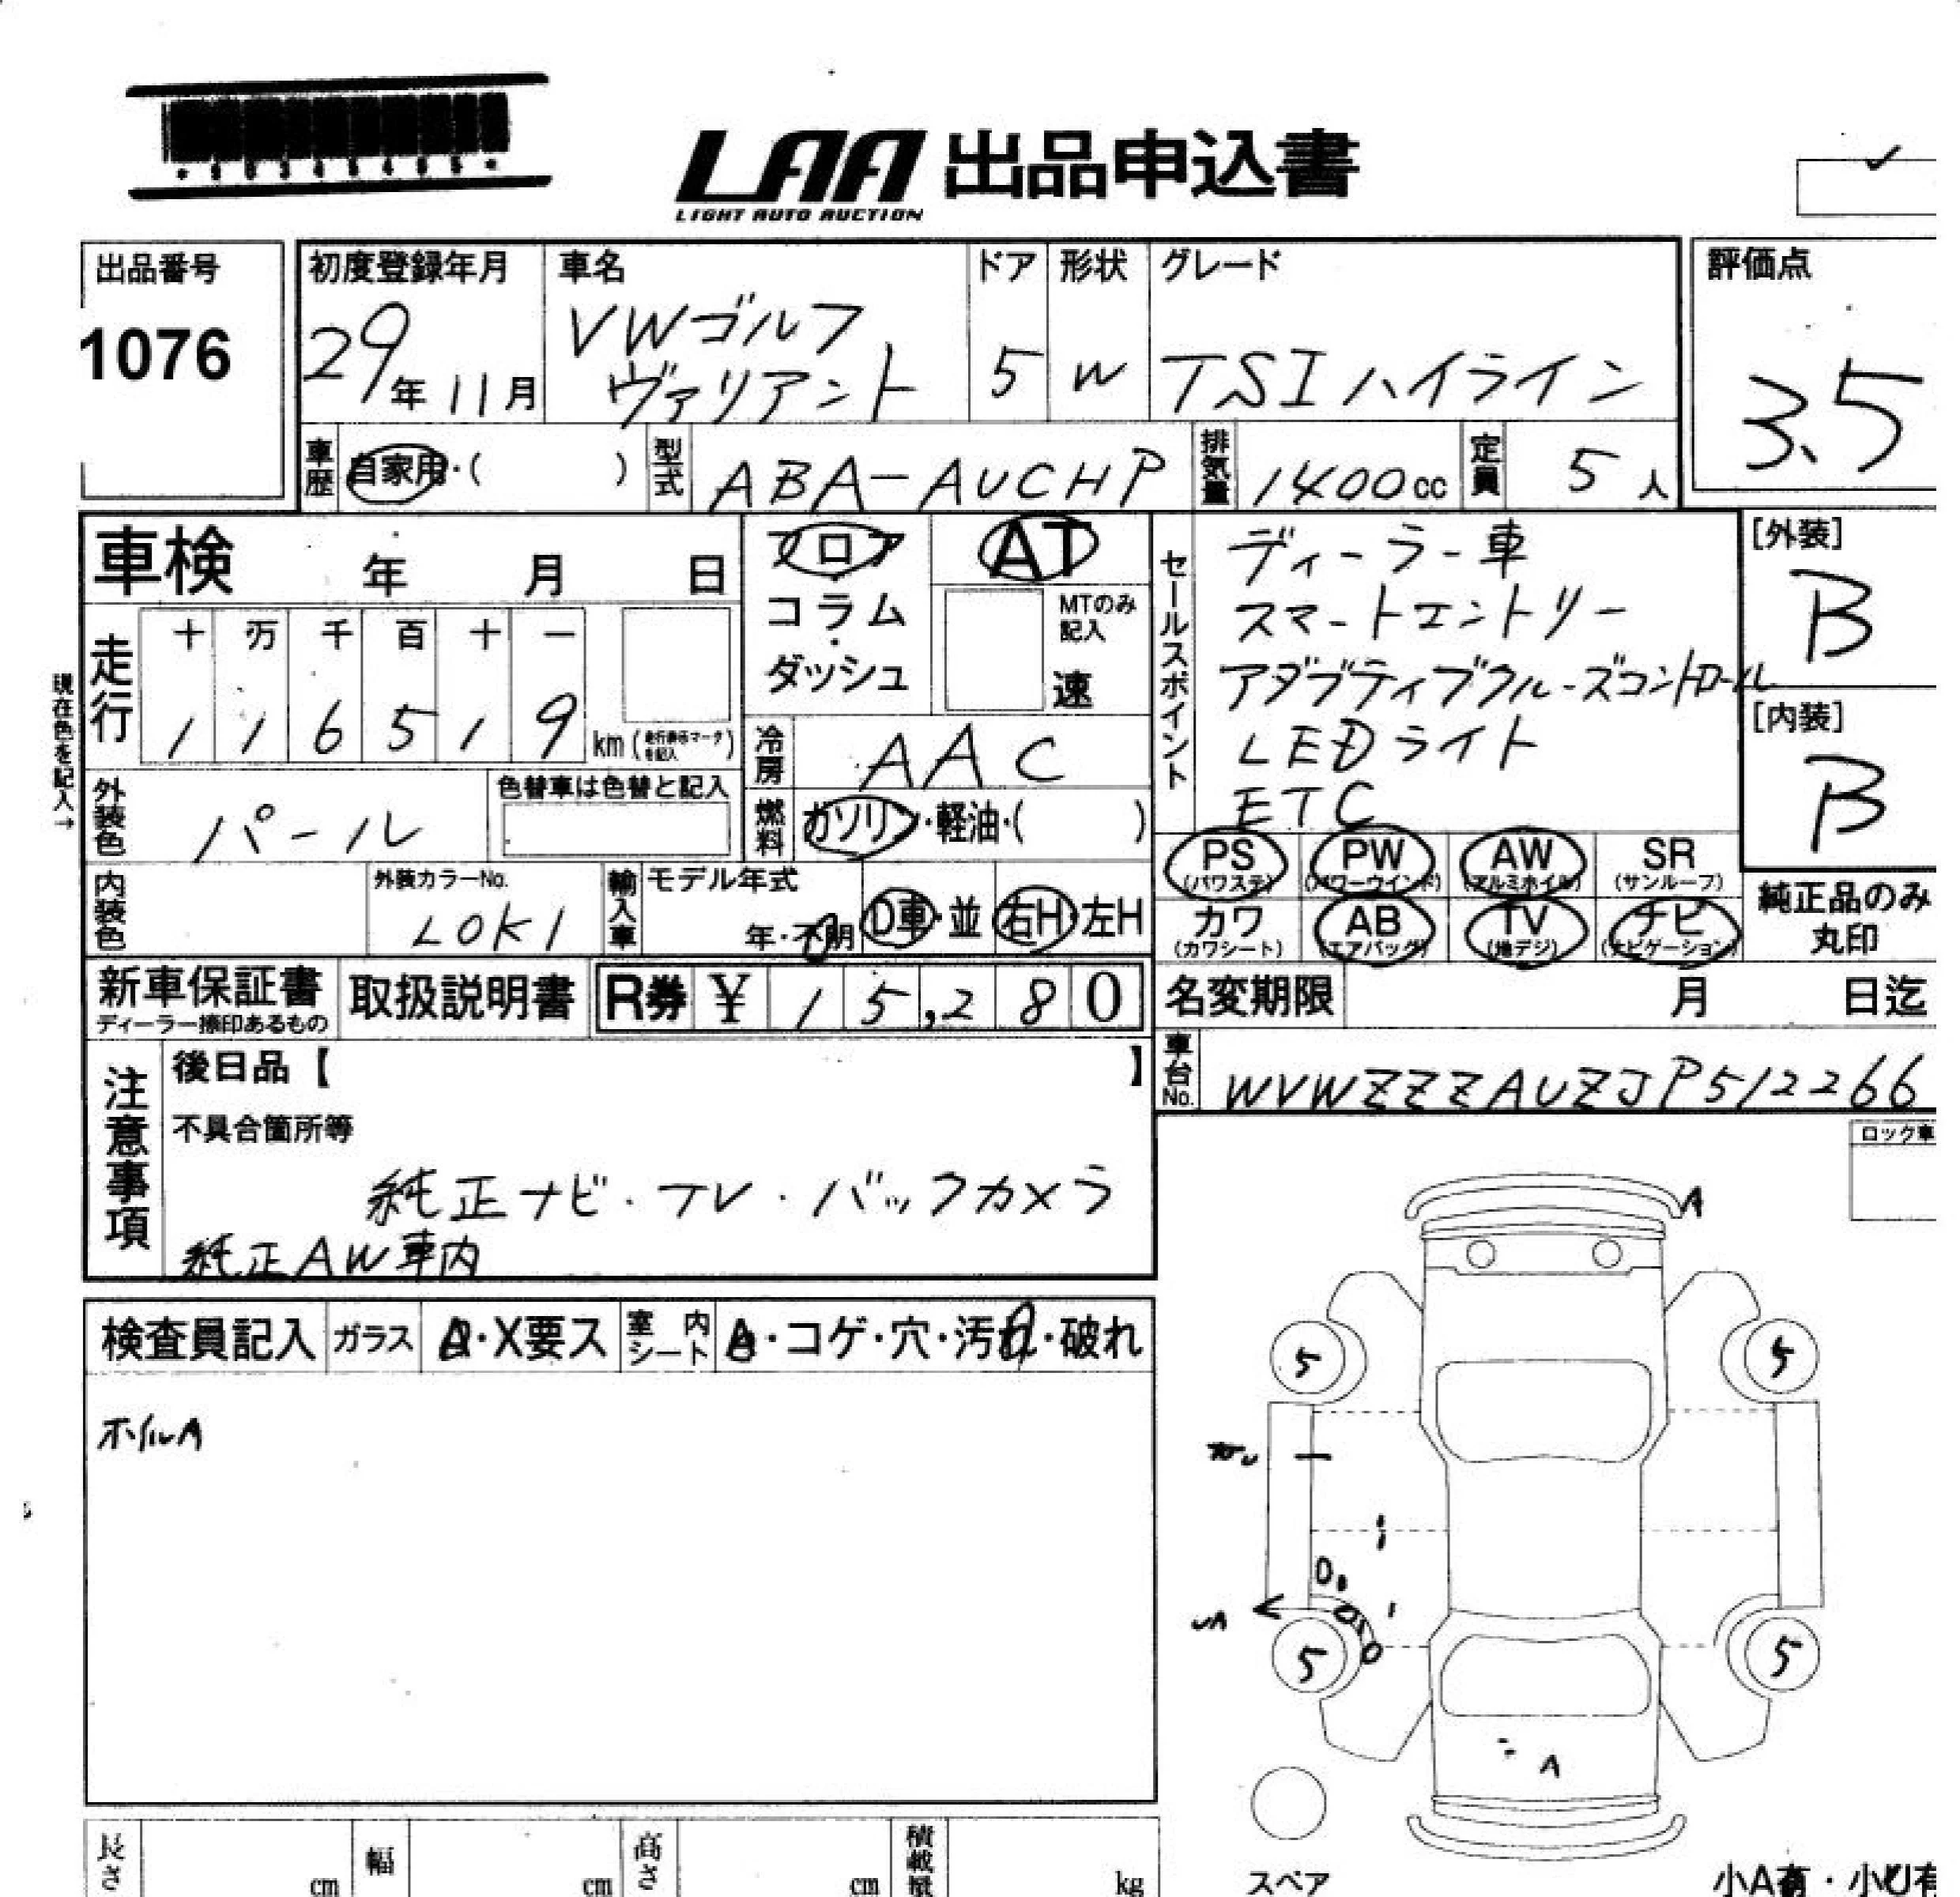 LAA 出品申込書
LIGHT AUTO AUCTION
出品番号
1076
初度登録年月
29年11月
車名
VWゴルフ
ヴァリアント
ドア
5
形状
W
グレード
TSIハイライン
評価点
3.5
車歴
自家用・( )
型式
ABA-AUCHP
排気量
1400cc
定員
5人
車検 年 月 日
フロア
コラム
・
ダッシュ
AT
MTのみ
記入
速
セールスポイント
ディーラー車
スマートエントリー
アダプティブクルーズコントロール
LEDライト
ETC
[外装]
B
[内装]
B
現在色を記入→
走行
十 万 千 百 十 一
1 1 6 5 1 9 km (走行表示マークを記入)
冷房
AAC
燃料
ガソリン・軽油・( )
外装色
パール
色替車は色替と記入
内装色
外装カラーNo.
LOK1
輸入車
モデル年式
年・不明
D車・並 右H・左H
PS (パワステ)
PW (パワーウインド)
AW (アルミホイル)
SR (サンルーフ)
カワ (カワシート)
AB (エアバッグ)
TV (地デジ)
ナビ (ナビゲーション)
純正品のみ
丸印
新車保証書
ディーラー捺印あるもの
取扱説明書
R券 ¥ 15,280
名変期限 月 日迄
車台No.
WVWZZZAUZJP512266
注意事項
後日品【 】
不具合箇所等
純正ナビ・TV・バックカメラ
純正AW車内
ロック車
検査員記入
ガラス
A・X要ス
室内シート
A・コゲ・穴・汚れ・破れ
ホイルA
A
5
5
5
5
A
スペア
長さ cm
幅 cm
高さ cm
積載量 kg
小A有・小U有